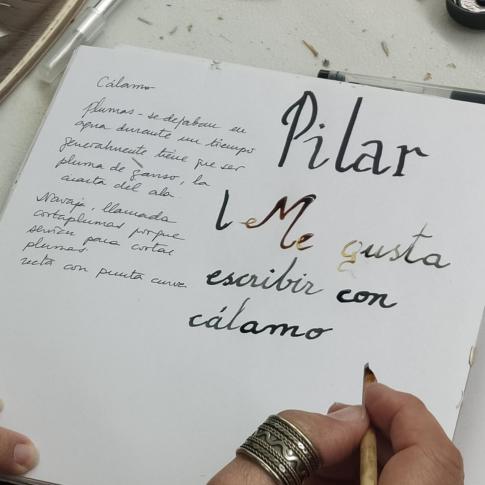 Cálamo
plumas - se dejaban en
agua durante un tiempo
generalmente tiene que ser
pluma de ganso, la
cuarta del ala
Navaja, llamada
cortaplumas porque
servían para cortar
plumas
recta con punta curva
Pilar
l e Me gusta
escribir con
cálamo